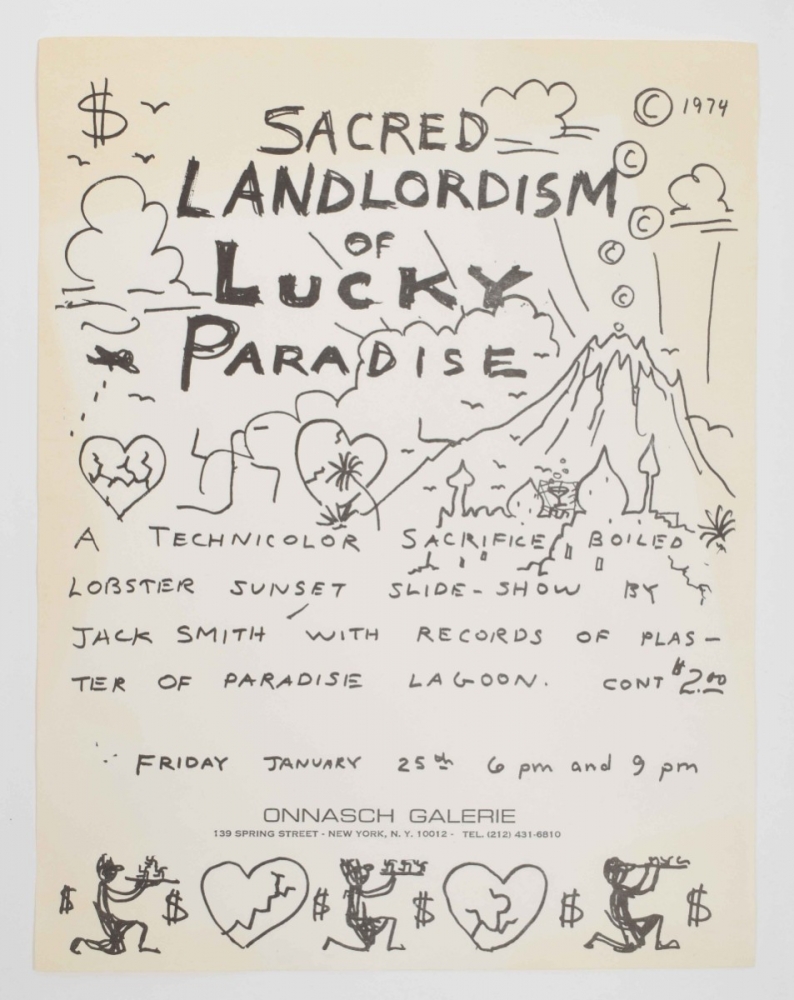 $
© 1974
SACRED
LANDLORDISM
OF
LUCKY
PARADISE
©
©
©
©
A TECHNICOLOR SACRIFICE BOILED
LOBSTER SUNSET SLIDE-SHOW BY
JACK SMITH WITH RECORDS OF PLAS-
TER OF PARADISE LAGOON. CONT $2.00
FRIDAY JANUARY 25th 6 pm and 9 pm
ONNASCH GALERIE
139 SPRING STREET - NEW YORK, N. Y. 10012 - TEL. (212) 431-6810
$ $ $ $ $ $